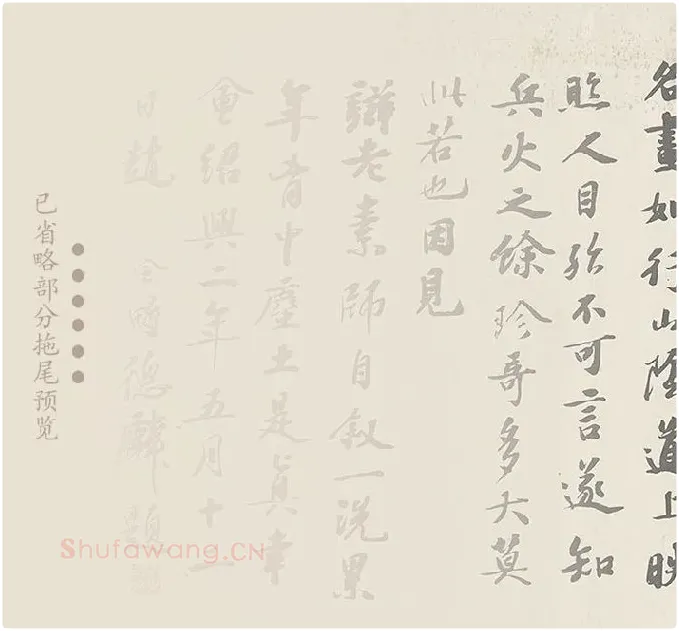 名畫如行山陰道上映
照人目殆不可言遂知
兵火之餘珍奇多矣莫
此若也因見
辯老素師自叙一洗累
年胷中塵土是真幸
會紹興二年五月十一
日趙令畤德麟題
已省略部分拖尾预览
Shufawang.CN